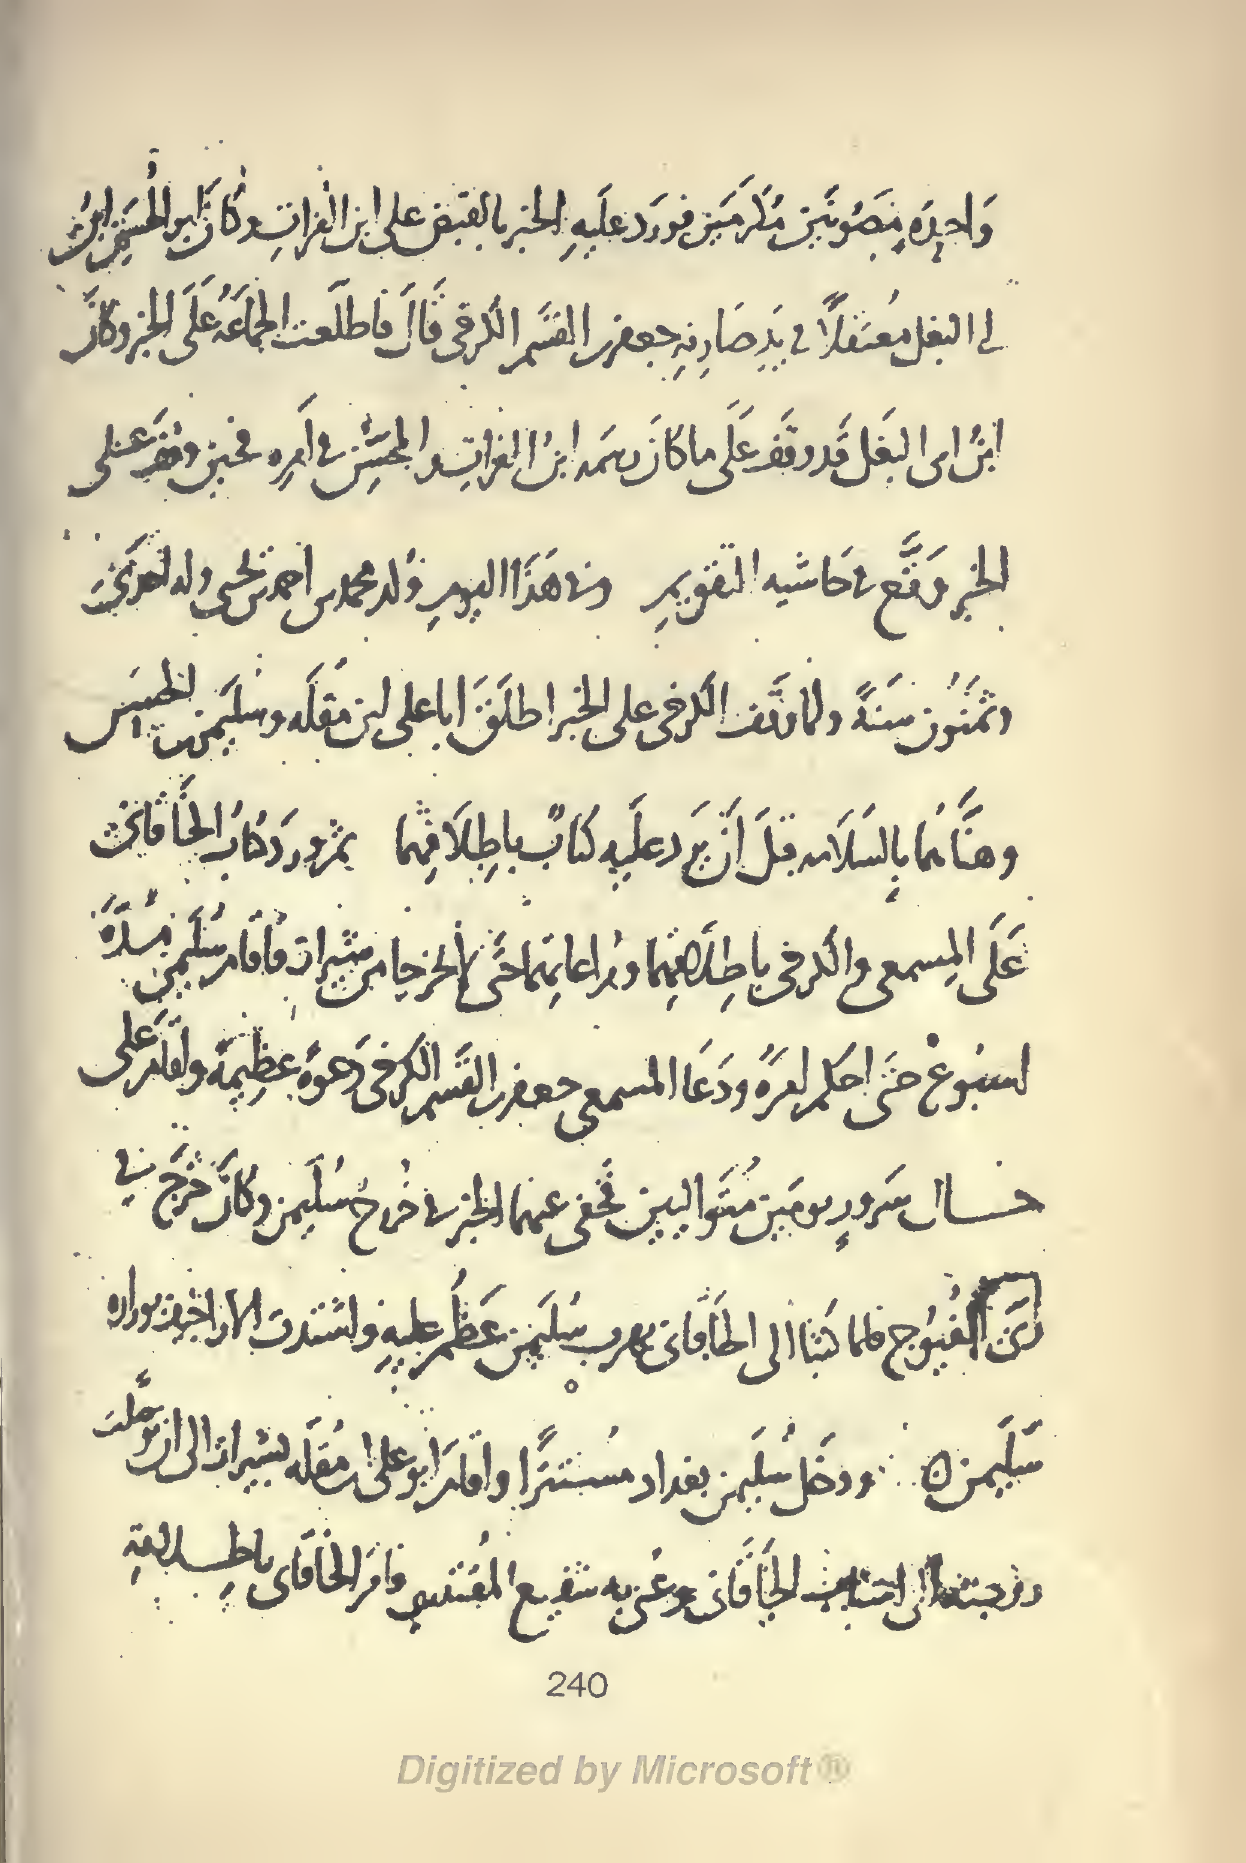 وَاحِدَه مَصُونَين مُكرمَين فورَد عليَهِ الخبر بالقبض على ابن الفراتِ وكَانَ ابو الحُسَين ابنُ
ابى البغل مُعتَقلاً فى يَدِ صَارِفِهِ جعفر بن القسَم الكَرخى قَالَ فاطلَعت الجمَاعَةُ عَلَى الخبر وكانَ
ابنُ ابى البغَل قَد وقَف عَلَى ما كانَ رسَمه ابنُ الفراتِ والمحسّن فى اَمرِه فحين وقف على
الخبر وَقَّع فى حَاشيه التقويم وفى هَذَا اليوم وُلد محمد بن احمد بن يحيى وله احدَى
وثمَنُون سَنَةً ولما وقَف الكرخى على الخبر اطلَقَ ابا على ابن مُقلَه وسُليَمن بن الحسن
وهنَّاهُما بالسَلامه قبلَ اَن يَرد عليَهِ كتابٌ باطِلاقِهما ثم ورَد كتابُ الخَاقانى
عَلَى المِسمعى والكرخى باطِلاقهِما ومُراعاتِهَما حَتَّى لا يخرجا من شيراز فاقَام سُلَيمن مُدَّةَ
اسبُوع حتَى احكم امرَهُ ودَعَا المسمعى جعفر بن القَسم الكرخى دَعوةً عظِيمَةً واقام على
حـال سرُورٍ يومَين مُتَواليَين فخفى عنهما الخبر فى خُروج سُليَمن وكانَ خَرجَ فى
زىّ الفيُوج فلما كتبَا الى الخاقَانى بهرب سُليَمن عَظُم عليَهِ واشتدت الاراجيف بوزاره
سُلَيمن ه ودخَل سُليَمن بغداد مستتراً واقَام ابو على بن مُقلَه بشيراز الى ان
الخَاقَانى وعُنى به شفيع المُقتدرى فامَر الخاقَانى باطِـلاقهِ
240
Digitized by Microsoft®